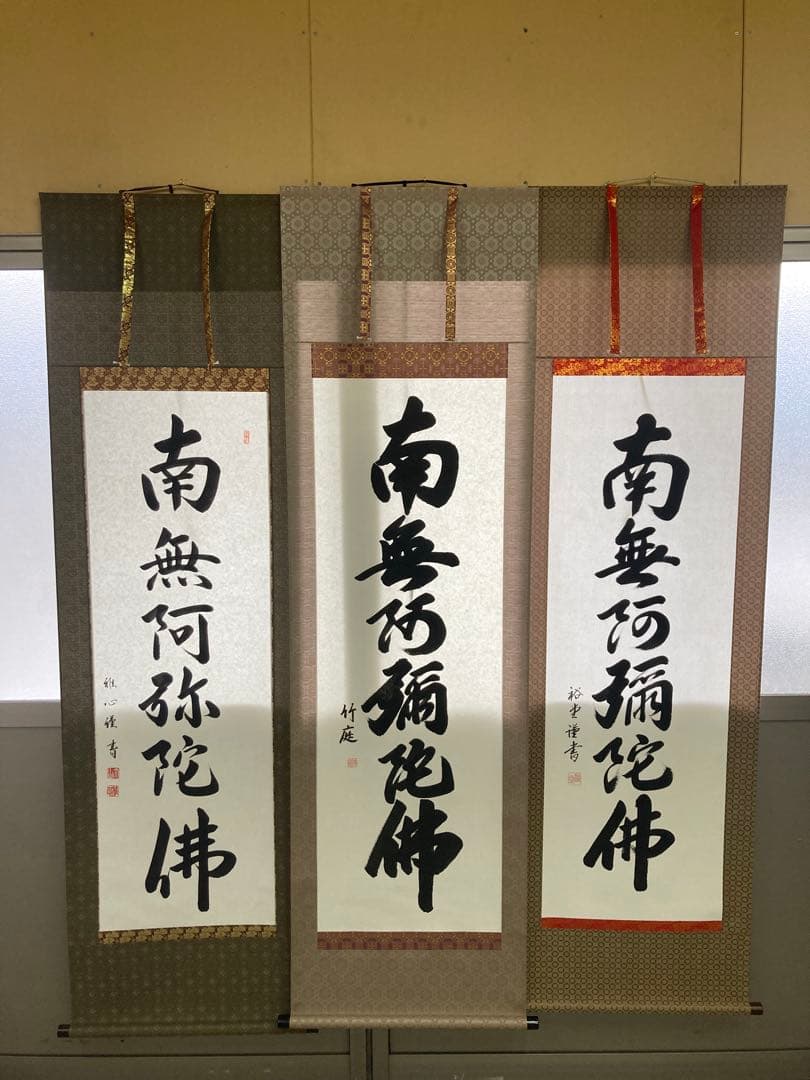 南無阿弥陀佛
雄心謹書
南無阿彌陀佛
竹庭
南無阿彌陀佛
裕堂謹書